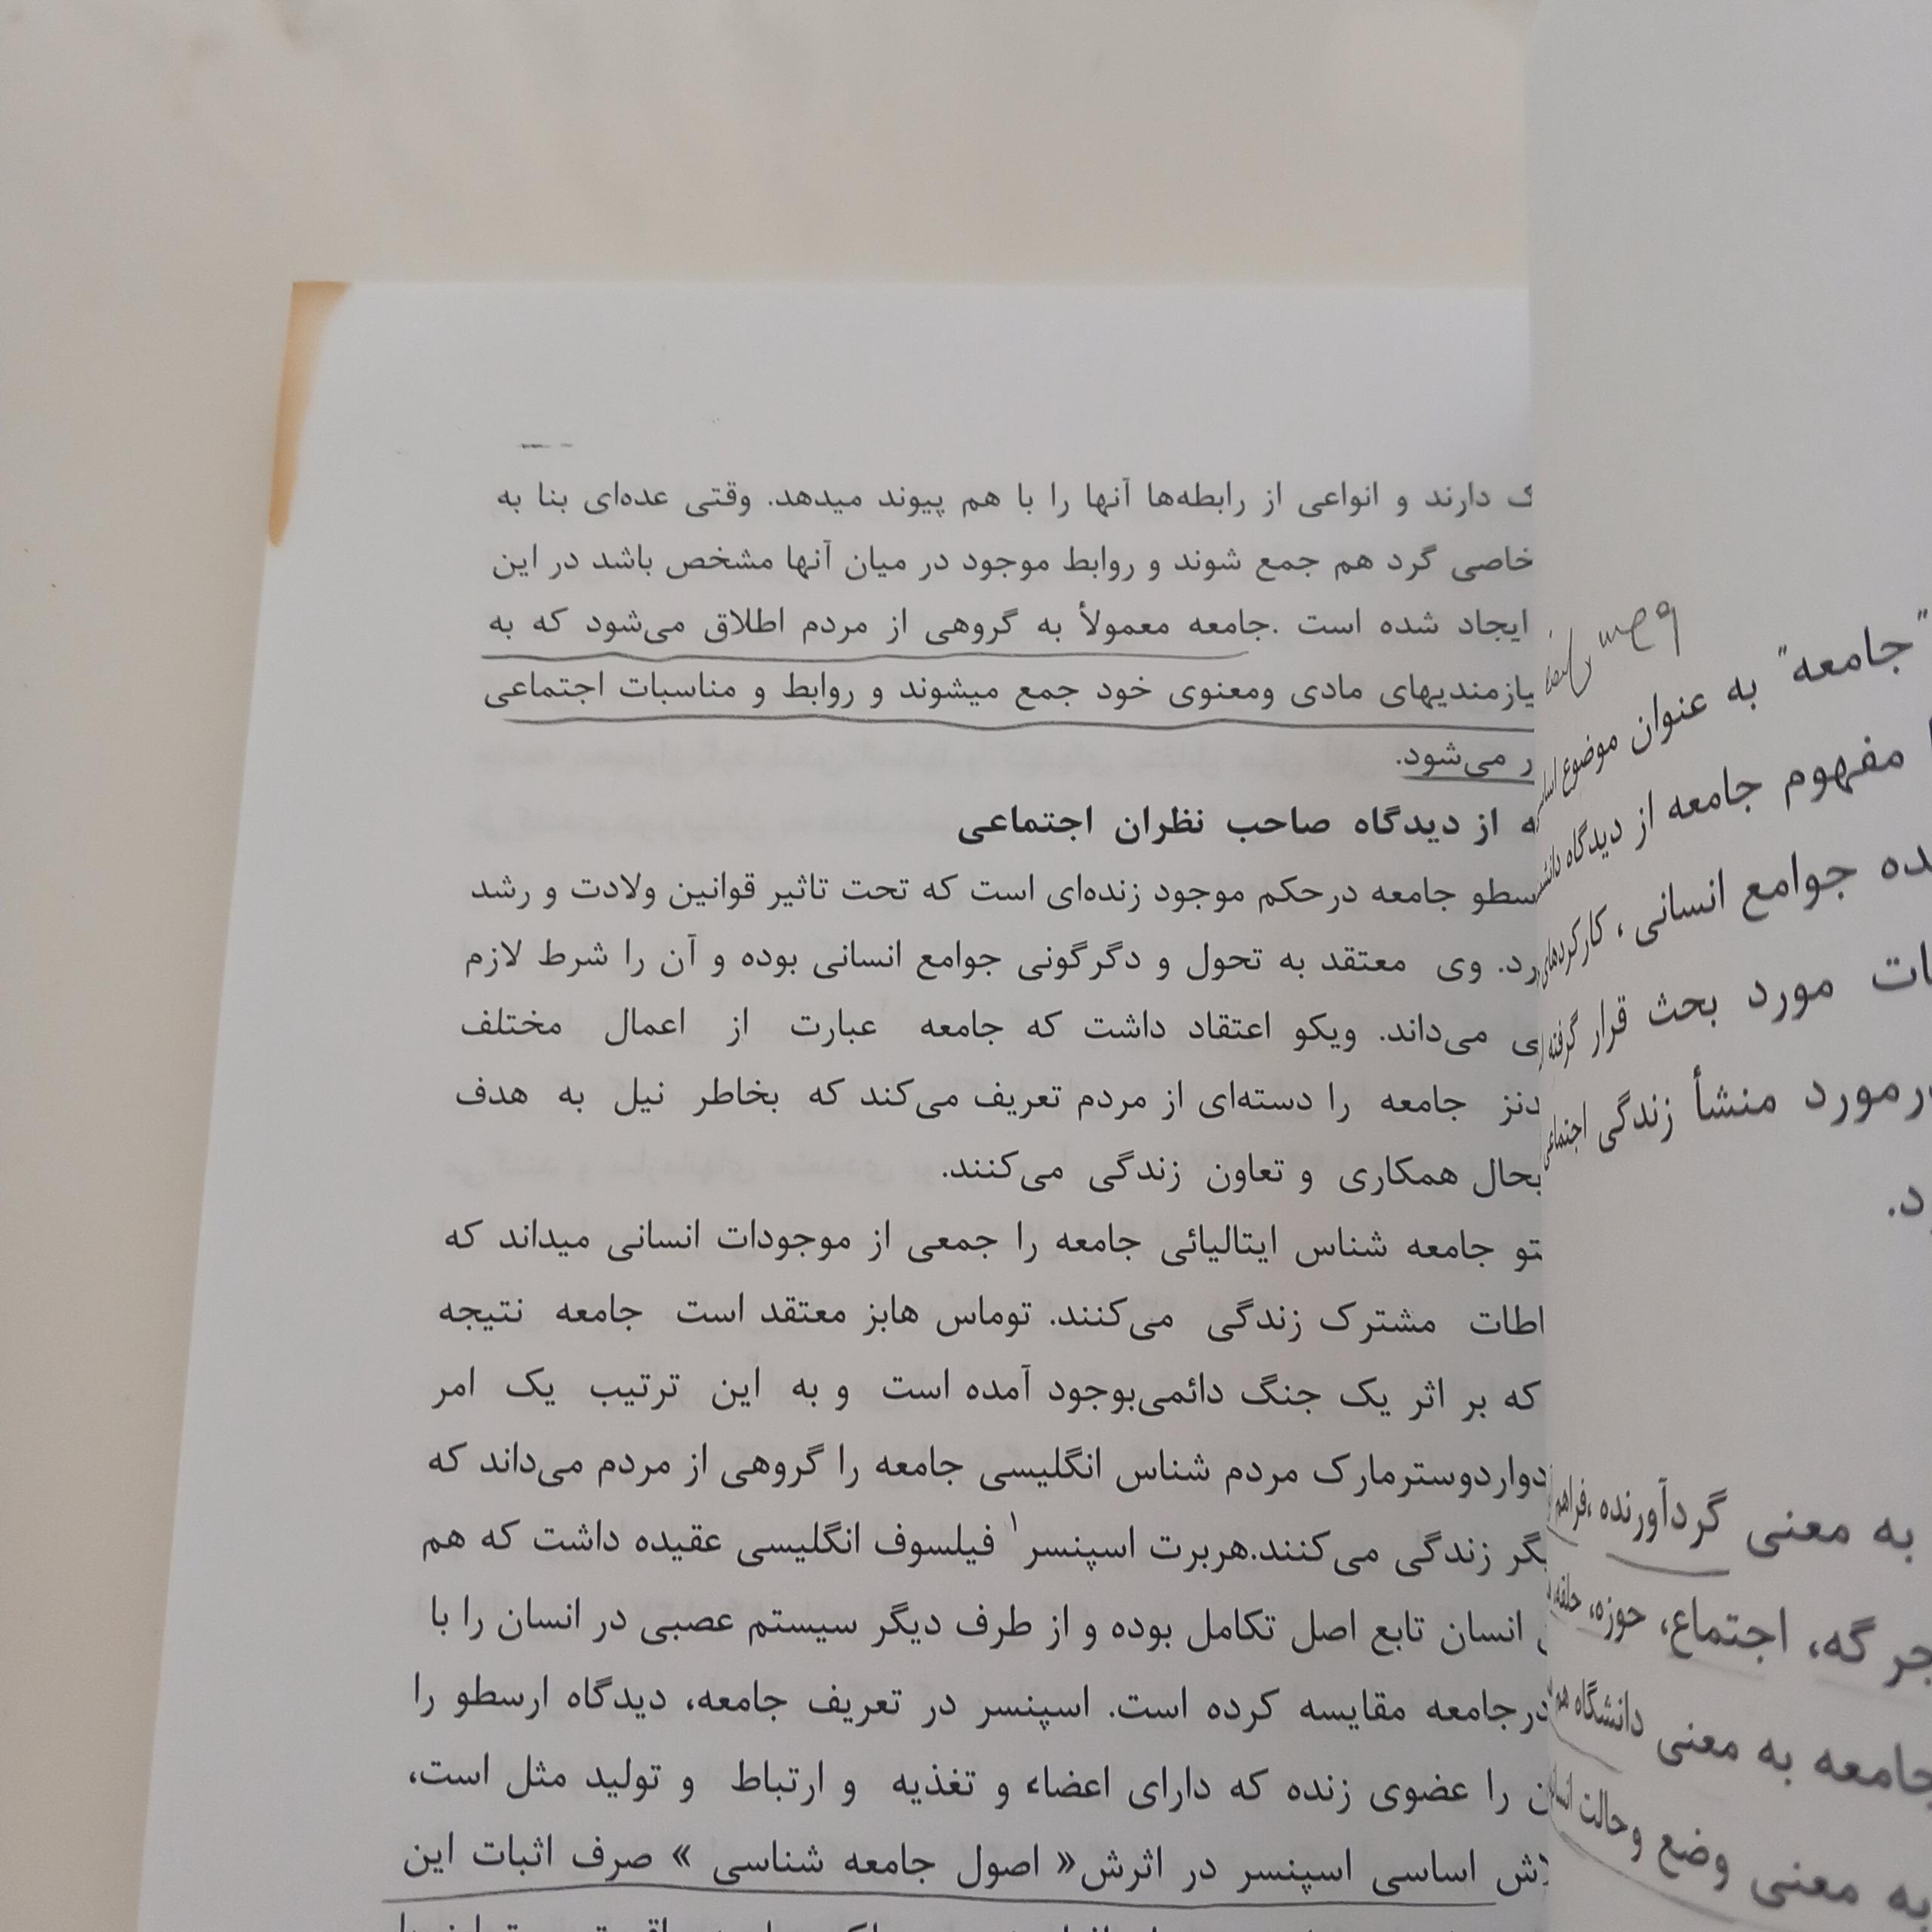 دارند و انواعی از رابطه‌ها آنها را با هم پیوند میدهد. وقتی عده‌ای بنا به
خاصی گرد هم جمع شوند و روابط موجود در میان آنها مشخص باشد در این
ایجاد شده است .جامعه معمولأ به گروهی از مردم اطلاق می‌شود که به
یازمندیهای مادی ومعنوی خود جمع میشوند و روابط و مناسبات اجتماعی
ر می‌شود.
ه از دیدگاه صاحب نظران اجتماعی
سطو جامعه درحکم موجود زنده‌ای است که تحت تاثیر قوانین ولادت و رشد
رد. وی معتقد به تحول و دگرگونی جوامع انسانی بوده و آن را شرط لازم
ی می‌داند. ویکو اعتقاد داشت که جامعه عبارت از اعمال مختلف
دنز جامعه را دسته‌ای از مردم تعریف می‌کند که بخاطر نیل به هدف
بحال همکاری و تعاون زندگی می‌کنند.
تو جامعه شناس ایتالیائی جامعه را جمعی از موجودات انسانی میداند که
اطات مشترک زندگی می‌کنند. توماس هابز معتقد است جامعه نتیجه
که بر اثر یک جنگ دائمی‌بوجود آمده است و به این ترتیب یک امر
دواردوسترمارک مردم شناس انگلیسی جامعه را گروهی از مردم می‌داند که
گر زندگی می‌کنند.هربرت اسپنسر۱ فیلسوف انگلیسی عقیده داشت که هم
انسان تابع اصل تکامل بوده و از طرف دیگر سیستم عصبی در انسان را با
درجامعه مقایسه کرده است. اسپنسر در تعریف جامعه، دیدگاه ارسطو را
ن را عضوی زنده که دارای اعضاء و تغذیه و ارتباط و تولید مثل است،
لاش اساسی اسپنسر در اثرش« اصول جامعه شناسی » صرف اثبات این
"جامعه" به عنوان موضوع
مفهوم جامعه از دیدگاه
ده جوامع انسانی ، کارکردهای
ات مورد بحث قرار گرفته
رمورد منشأ زندگی اجتماعی
د.
به معنی گردآورنده ،فراهم
جر گه، اجتماع، حوزه، حلقه
جامعه به معنی دانشگاه
به معنی وضع وحالت